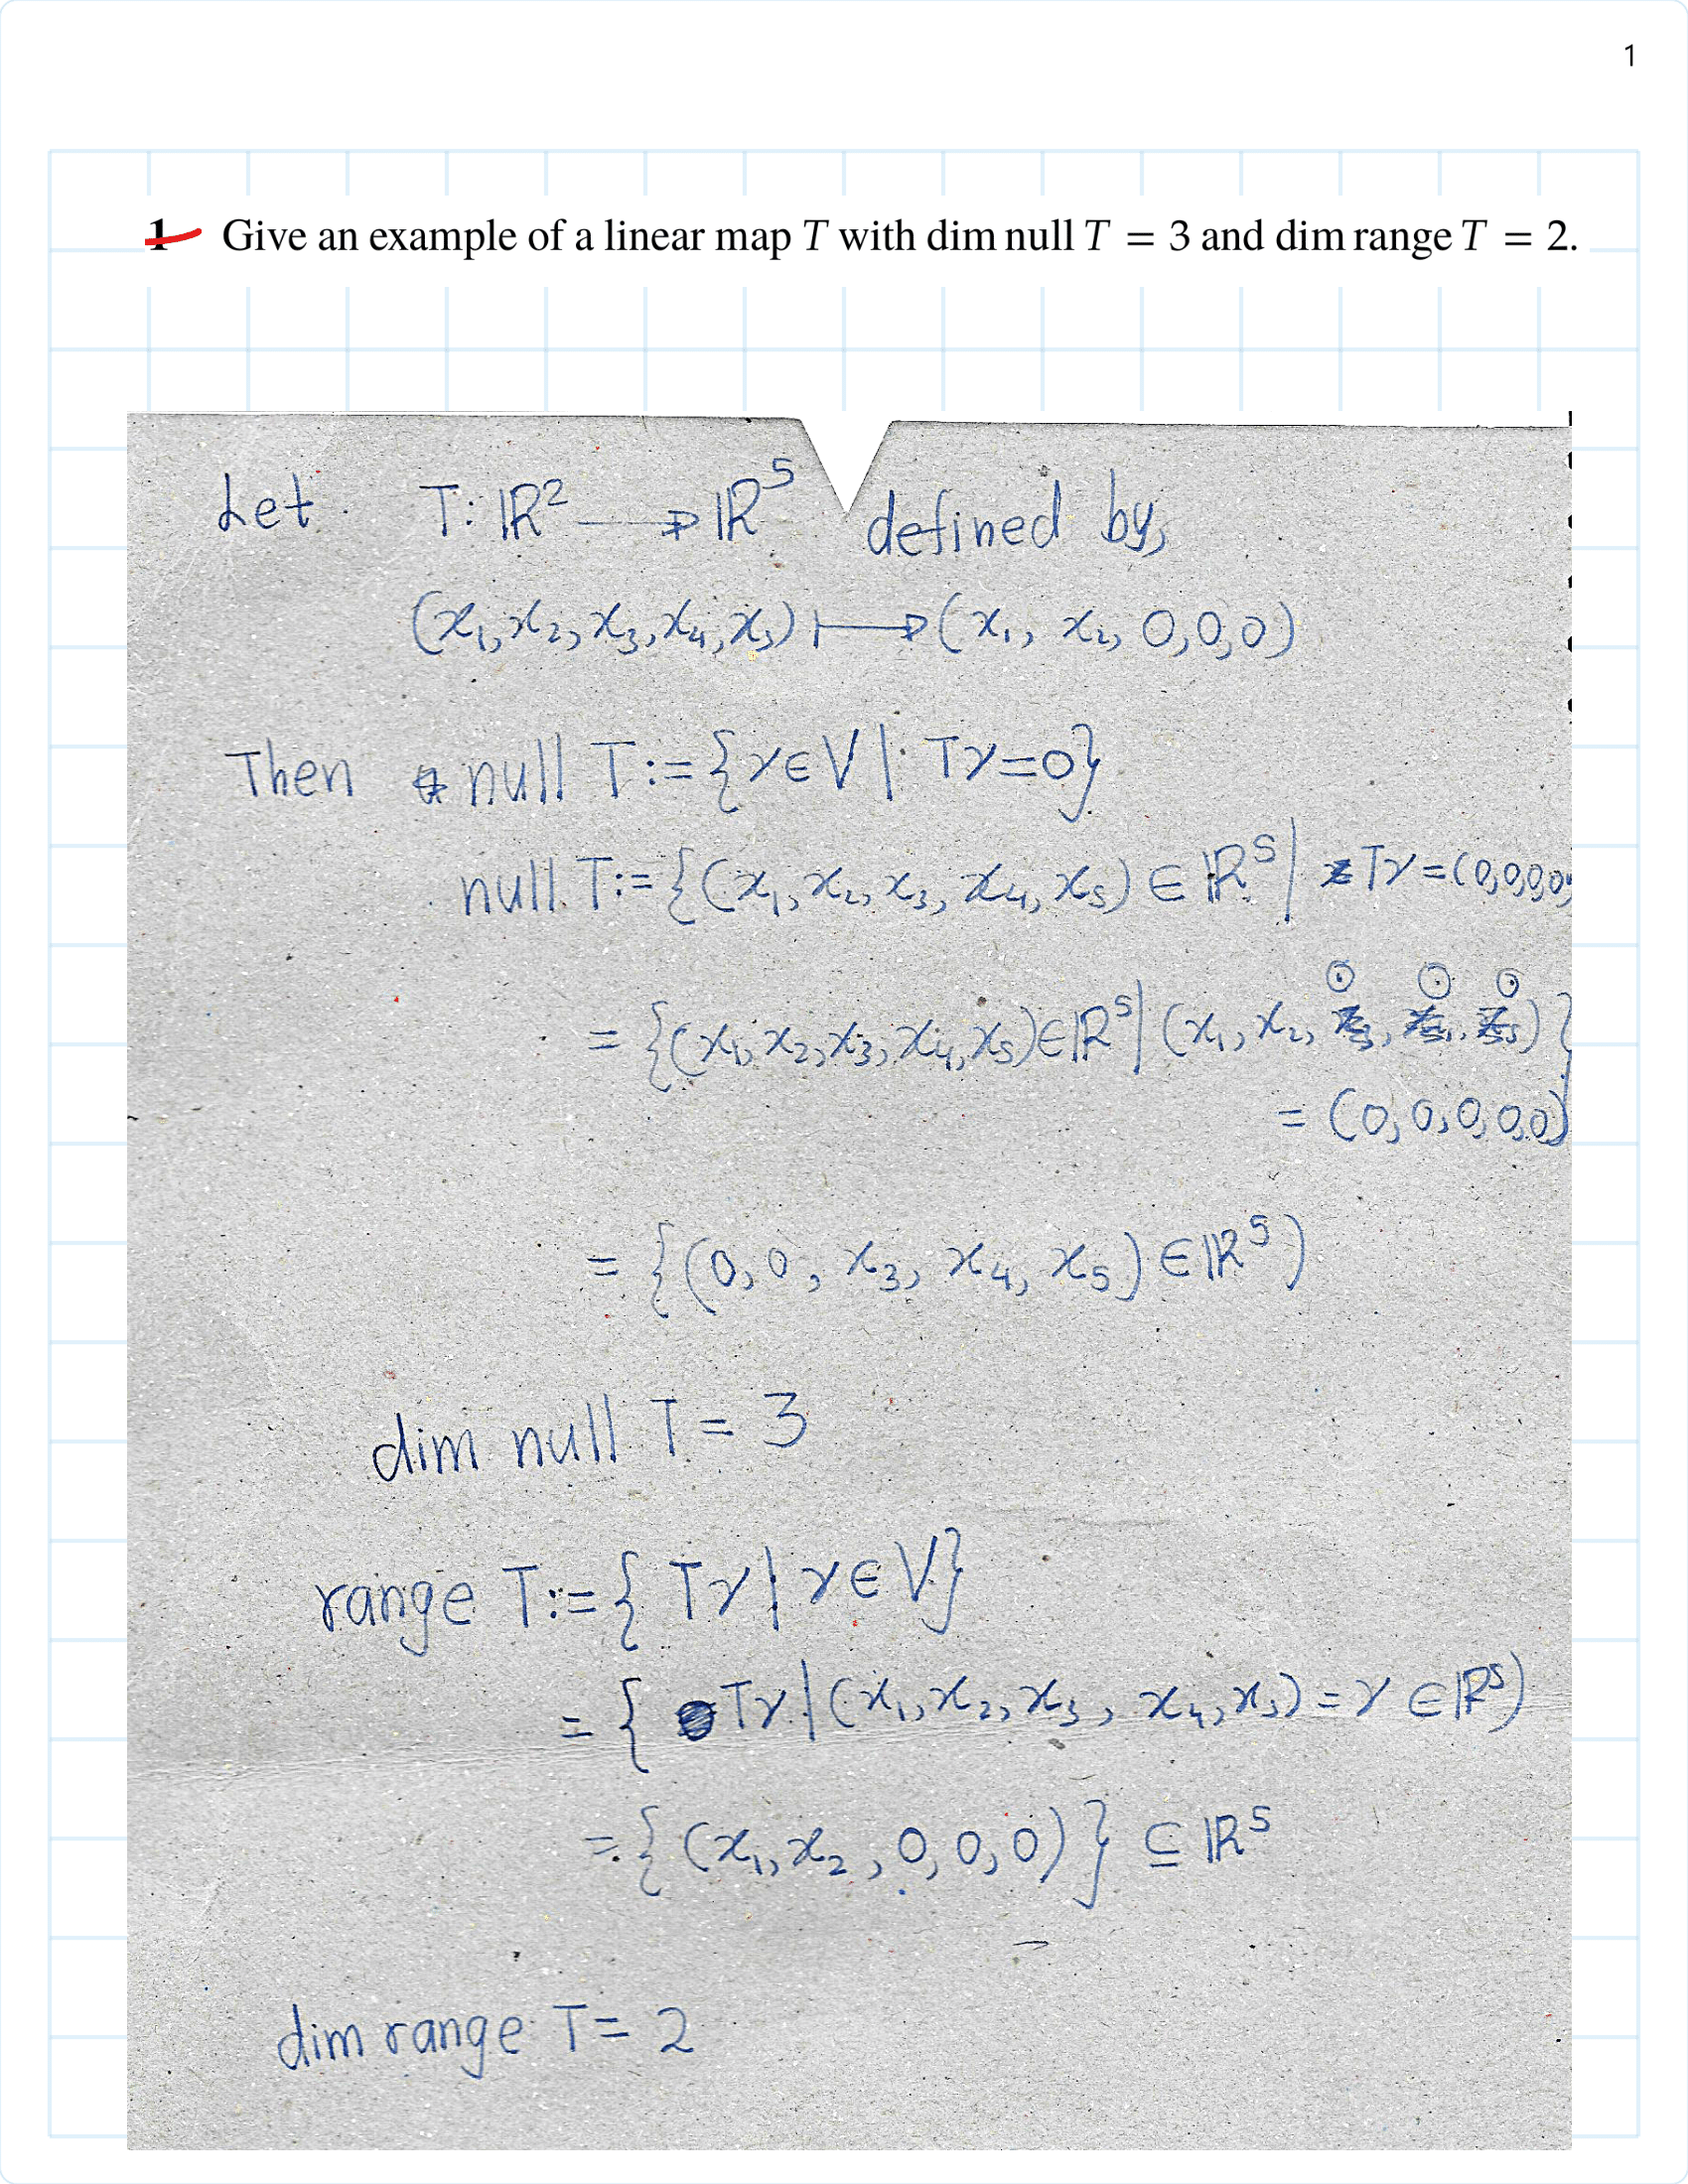 1
1 Give an example of a linear map T with dim null T = 3 and dim range T = 2.
Let T: ℝ² → ℝ⁵ defined by,
(x₁, x₂, x₃, x₄, x₅) ↦ (x₁, x₂, 0, 0, 0)
Then null T := {v ∈ V | Tv = 0}
null T := {(x₁, x₂, x₃, x₄, x₅) ∈ ℝ⁵ | Tv = (0,0,0,0,
= {(x₁, x₂, x₃, x₄, x₅) ∈ ℝ⁵ | (x₁, x₂, 0, 0, 0)}
= (0, 0, 0, 0, 0)
= {(0, 0, x₃, x₄, x₅) ∈ ℝ⁵)
dim null T = 3
range T := { Tv | v ∈ V}
= { Tv | (x₁, x₂, x₃, x₄, x₅) = v ∈ ℝ⁵)
= {(x₁, x₂, 0, 0, 0)} ⊆ ℝ⁵
dim range T = 2